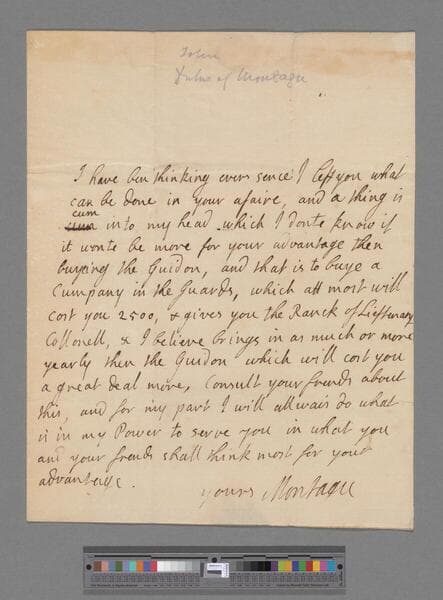 John
Duke of Montagu
I have ben thinking ever sence I left you what
can be done in your afaire, and a thing is
cum into my head which I donte know if
it wonte be more for your advantage then
buying the Guidon, and that is to buye a
Cumpany in the Guards, which att most will
cost you 2500, & gives you the Ranck of Lieftenant
Collonell, & I believe brings in as much or more
yearly then the Guidon which will cost you
a great deal more, Consult your frends about
this, and for my part I will allwais do what
is in my Power to serve you in what you
and your frends shall think most for your
advantage.
yours Montagu